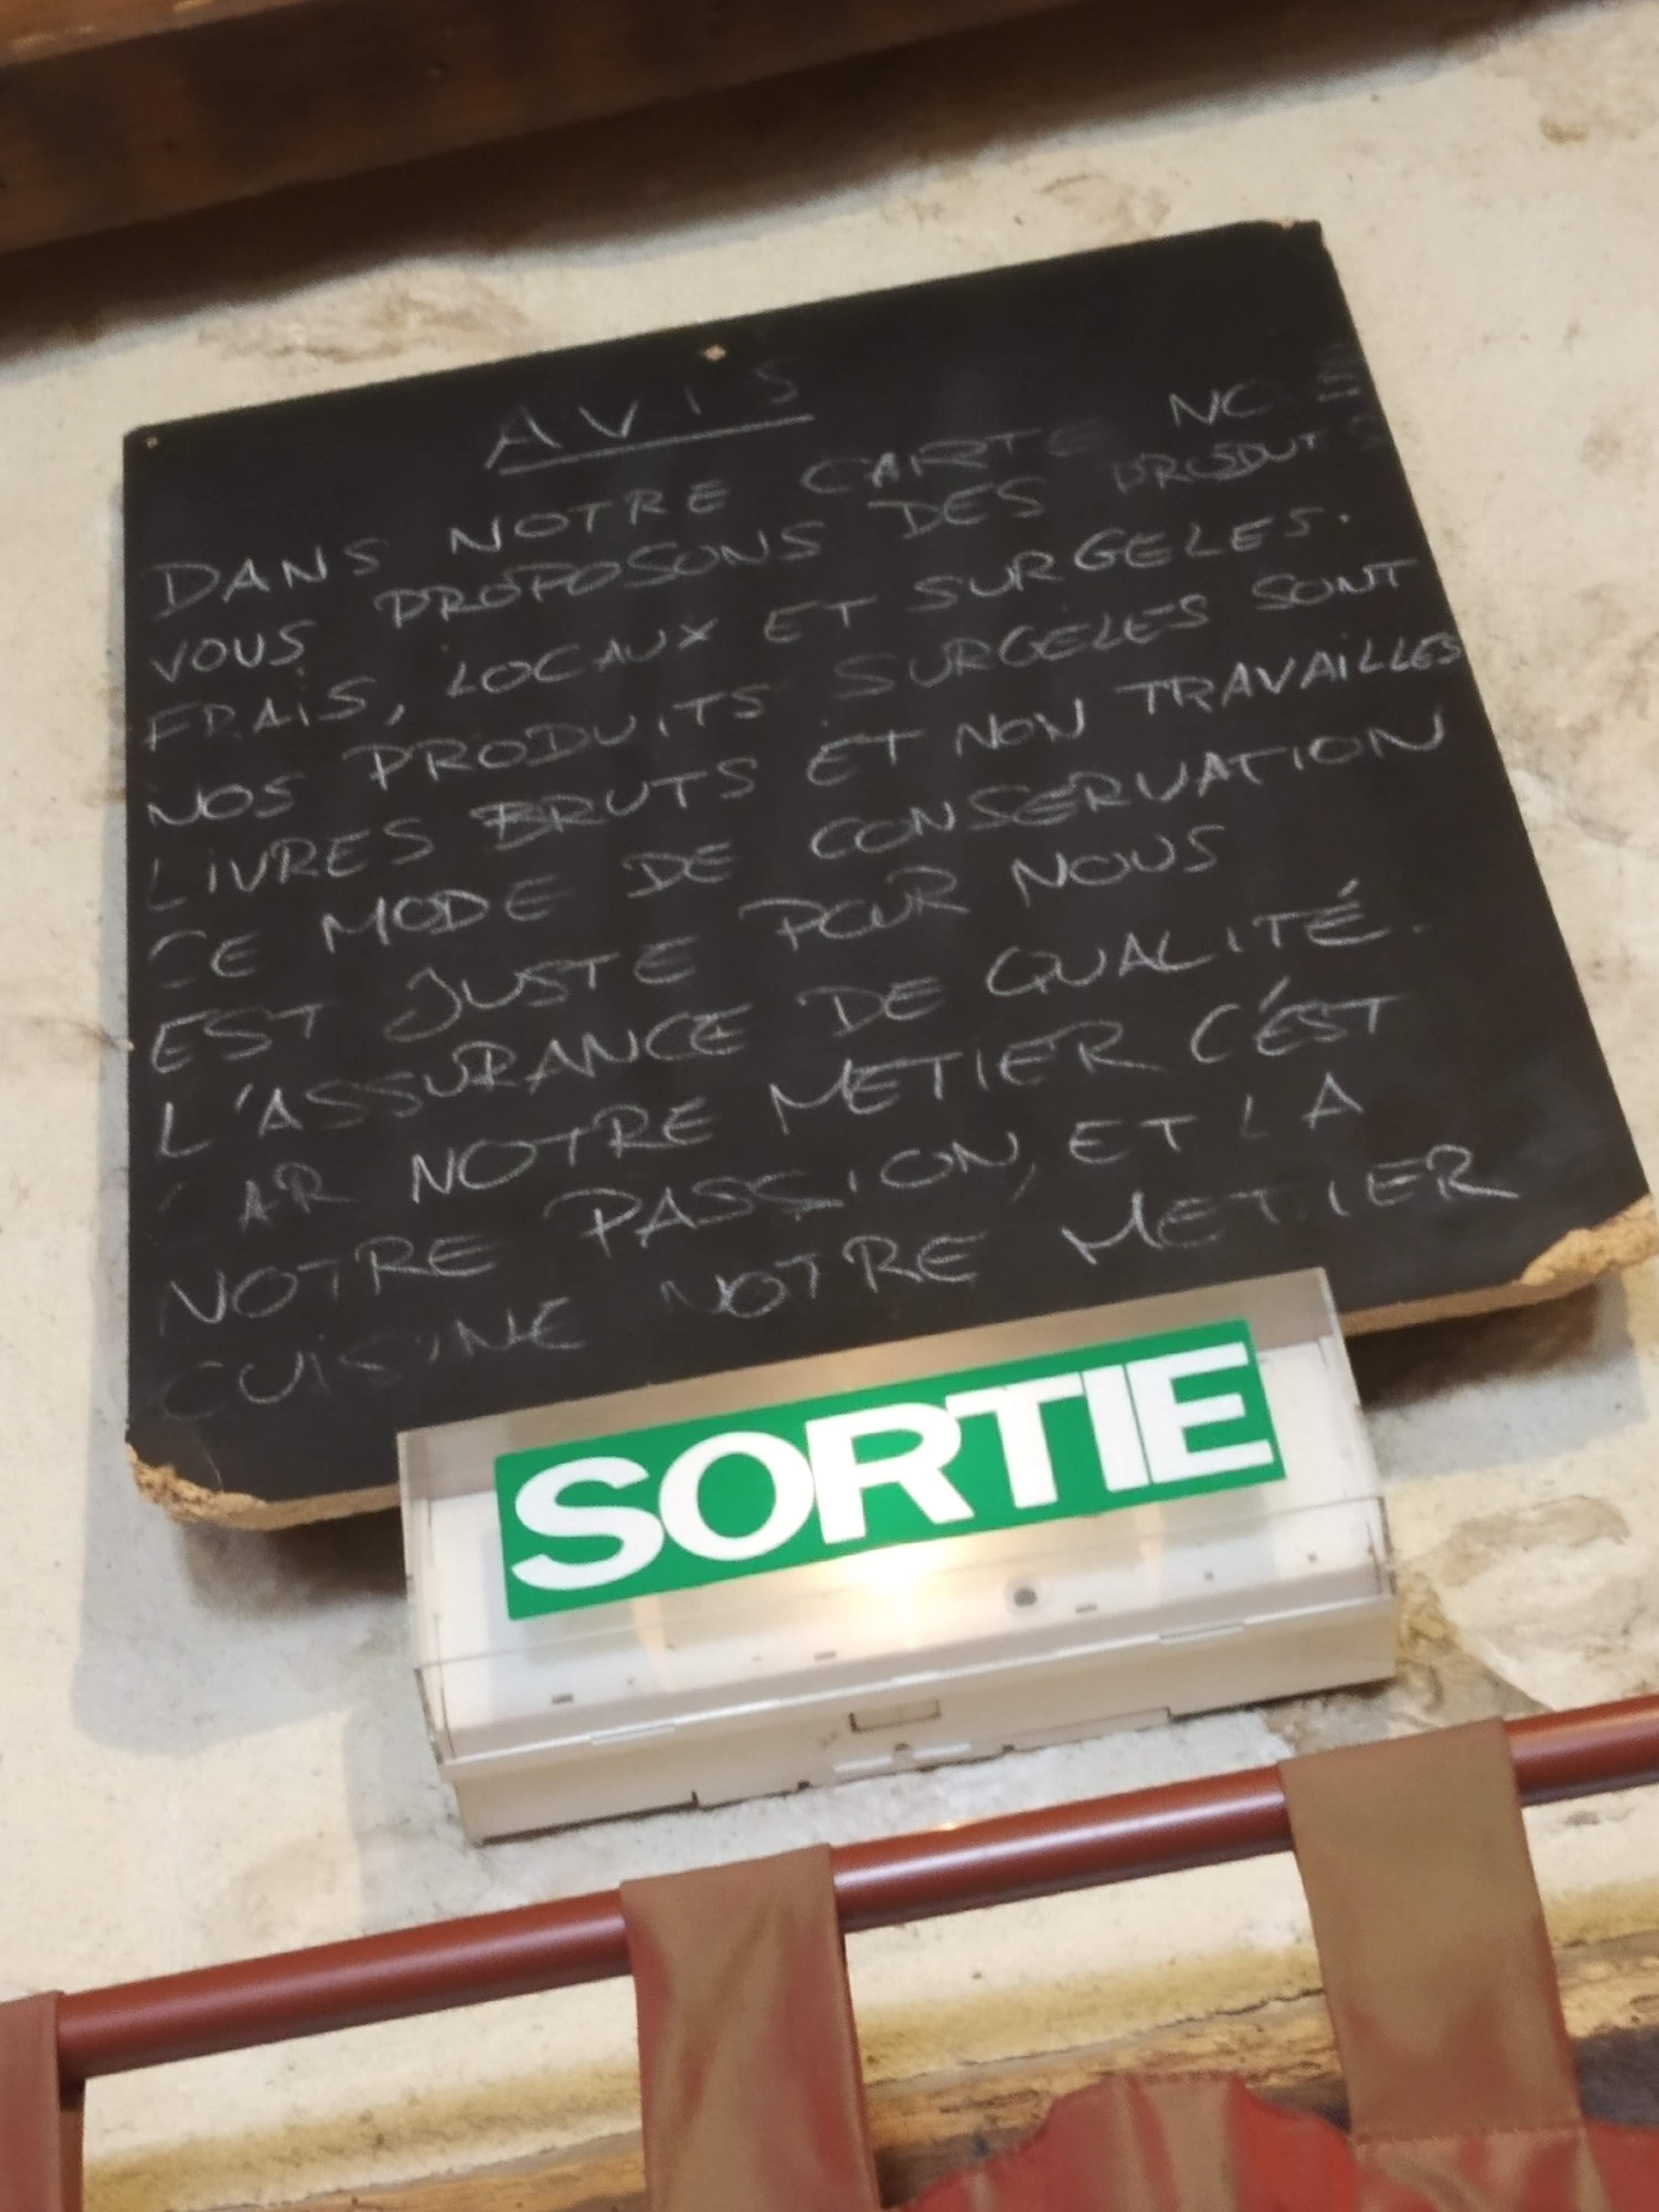 AVIS
DANS NOTRE CARTE
VOUS PROPOSONS DES PRODUTS
FRAIS, LOCAUX ET SURGELES.
NOS PRODUITS SURGELES SONT
LIVRES BRUTS ET NON TRAVAILLES
CE MODE DE CONSERVATION
EST JUSTE POUR NOUS
L'ASSURANCE DE QUALITÉ.
CAR NOTRE METIER C'ÉST
NOTRE PASSION, ET LA
CUISINE NOTRE METIER
SORTIE